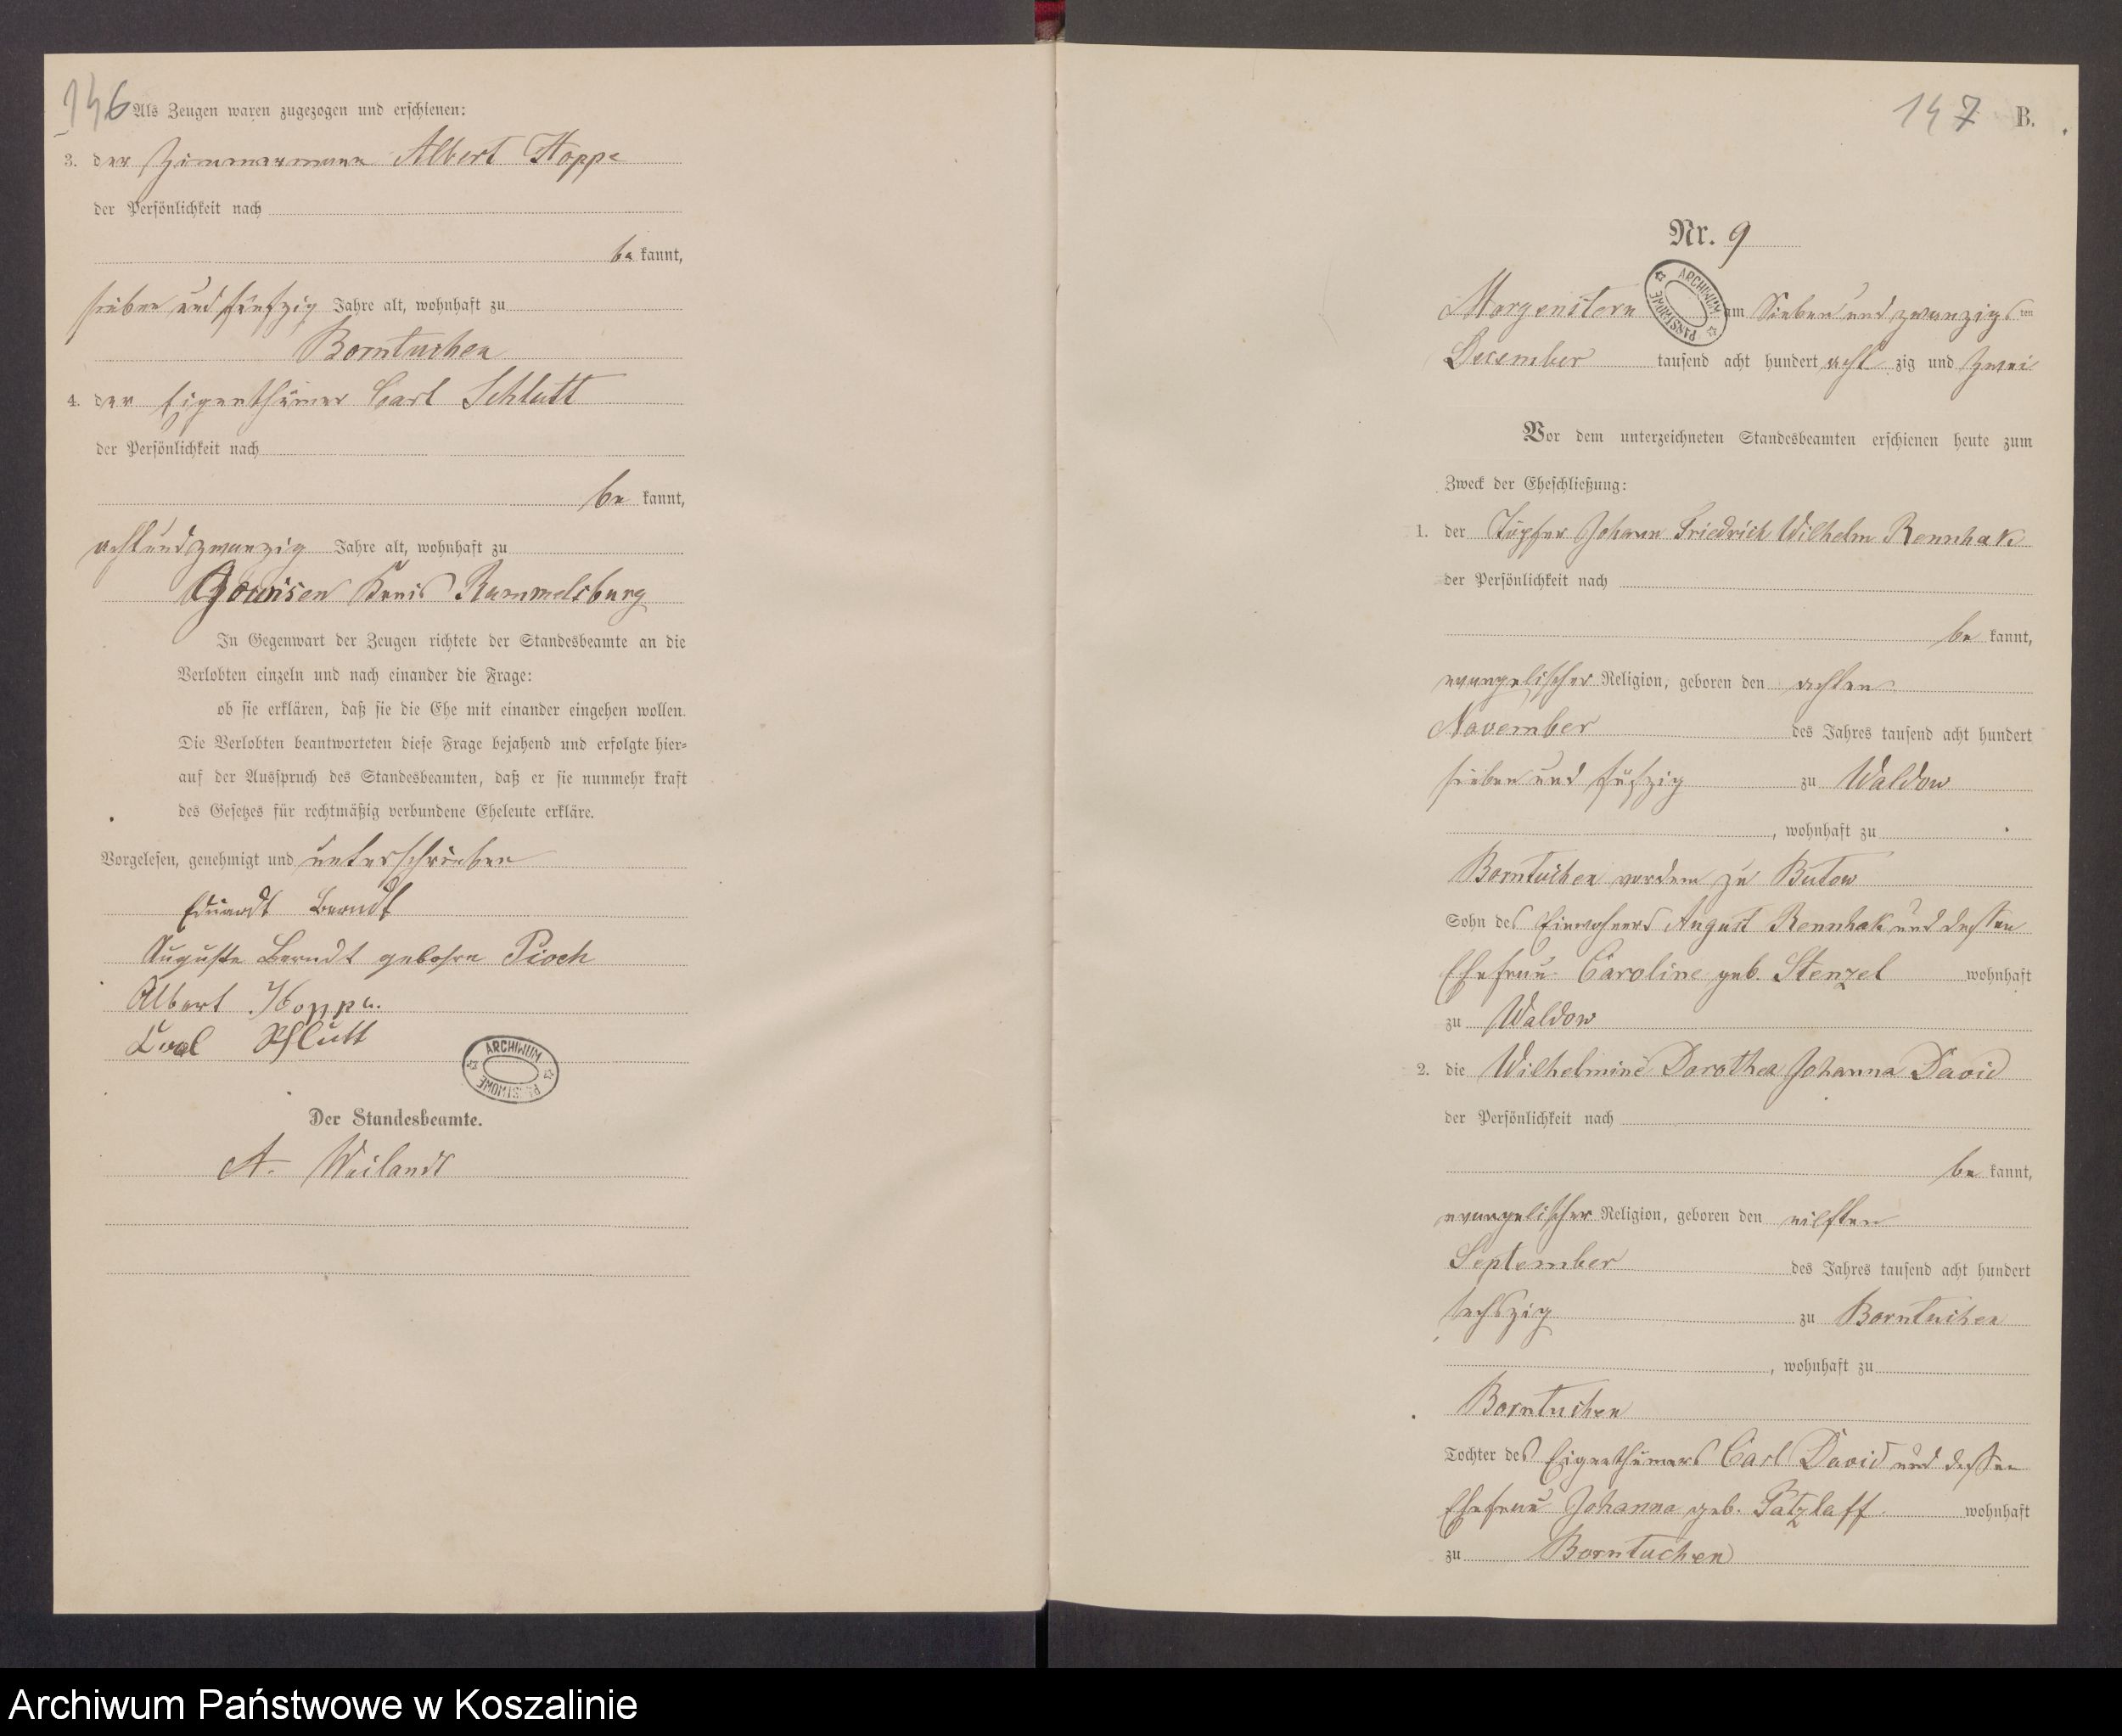 146
Als Zeugen waren zugezogen und erschienen:
3. der Zimmermann Albert Hoppe
der Persönlichkeit nach
be kannt,
sieben und fünfzig Jahre alt, wohnhaft zu
Borntuchen
4. der Eigenthümer Carl Schlutt
der Persönlichkeit nach
be kannt,
achtundzwanzig Jahre alt, wohnhaft zu
Kreis Rummelsburg
In Gegenwart der Zeugen richtete der Standesbeamte an die
Verlobten einzeln und nach einander die Frage:
ob sie erklären, daß sie die Ehe mit einander eingehen wollen.
Die Verlobten beantworteten diese Frage bejahend und erfolgte hier-
auf der Ausspruch des Standesbeamten, daß er sie nunmehr kraft
des Gesetzes für rechtmäßig verbundene Eheleute erkläre.
Vorgelesen, genehmigt und unterschrieben
Eduardt Berndt
Auguste Berndt geborne Pioch
Albert Hoppe.
Carl Schlutt
ARCHIWUM PAŃSTWOWE
Der Standesbeamte.
A. Weilandt
147 B.
Nr. 9
ARCHIWUM PAŃSTWOWE
Morgenstern am Sieben und zwanzigs ten
December tausend acht hundert acht zig und zwei
Vor dem unterzeichneten Standesbeamten erschienen heute zum
Zweck der Eheschließung:
1. der Töpfer Johann Friedrich Wilhelm Rennhak
der Persönlichkeit nach
be kannt,
evangelischer Religion, geboren den achten
November des Jahres tausend acht hundert
sieben und füfzig zu Waldow
, wohnhaft zu
Borntuchen vordem zu Butow
Sohn des Einwohners August Rennhak und dessen
Ehefrau Caroline geb. Stenzel wohnhaft
zu Waldow
2. die Wilhelmine Dorothea Johanna David
der Persönlichkeit nach
be kannt,
evangelischer Religion, geboren den eilften
September des Jahres tausend acht hundert
sechszig zu Borntuchen
, wohnhaft zu
Borntuchen
Tochter des Eigenthümers Carl David und dessen
Ehefrau Johanna geb. Patzlaff wohnhaft
zu Borntuchen
Archiwum Państwowe w Koszalinie